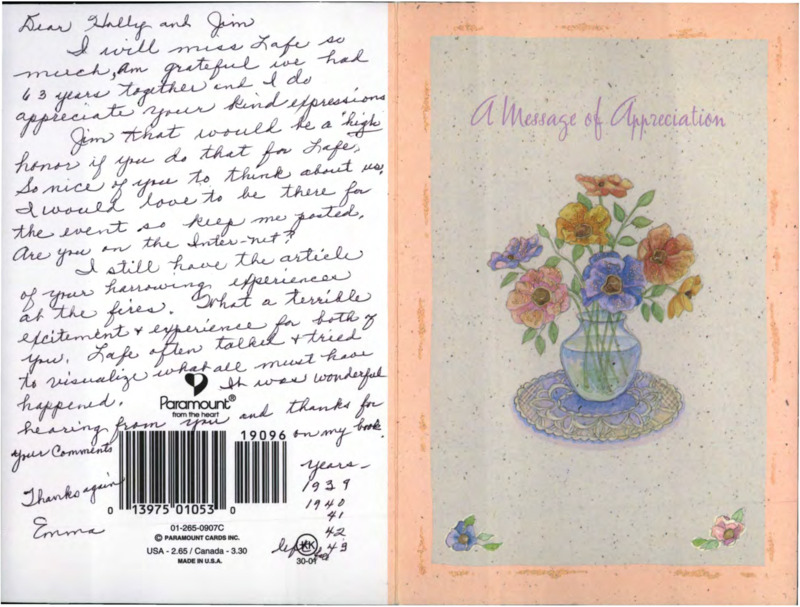 Dear Holly and Jim
I will miss Lafe so
much, am grateful we had
63 years together and I do
appreciate your kind expressions
Jim that would be a "high
honor if you do that for Lafe.
So nice of you to think about us.
I would love to be there for
the event so keep me posted.
Are you on the Inter-net?
I still have the article
of your harrowing experiences
at the fires. What a terrible
excitement & experience for both of
you. Lafe often talked & tried
to visualize what all must have
happened. It was wonderful
Paramount®
from the heart
hearing from you and thanks for
your Comments on my book
19096
Thanks again
Emma
0 13975 01053 0
Years -
1939
1940
41
42
43
01-265-0907C
© PARAMOUNT CARDS INC.
USA - 2.65 / Canada - 3.30
MADE IN U.S.A.
KK
30-01
A Message of Appreciation